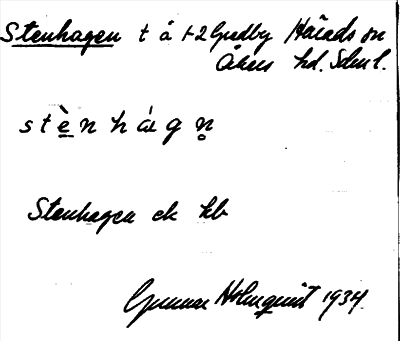 Stenhagen t å 1-2 Lundby Härads sn
Åkers hd. Söml.
stènhágn̥
Stenhagen ek kb
Gunnar Holmquist 1934.